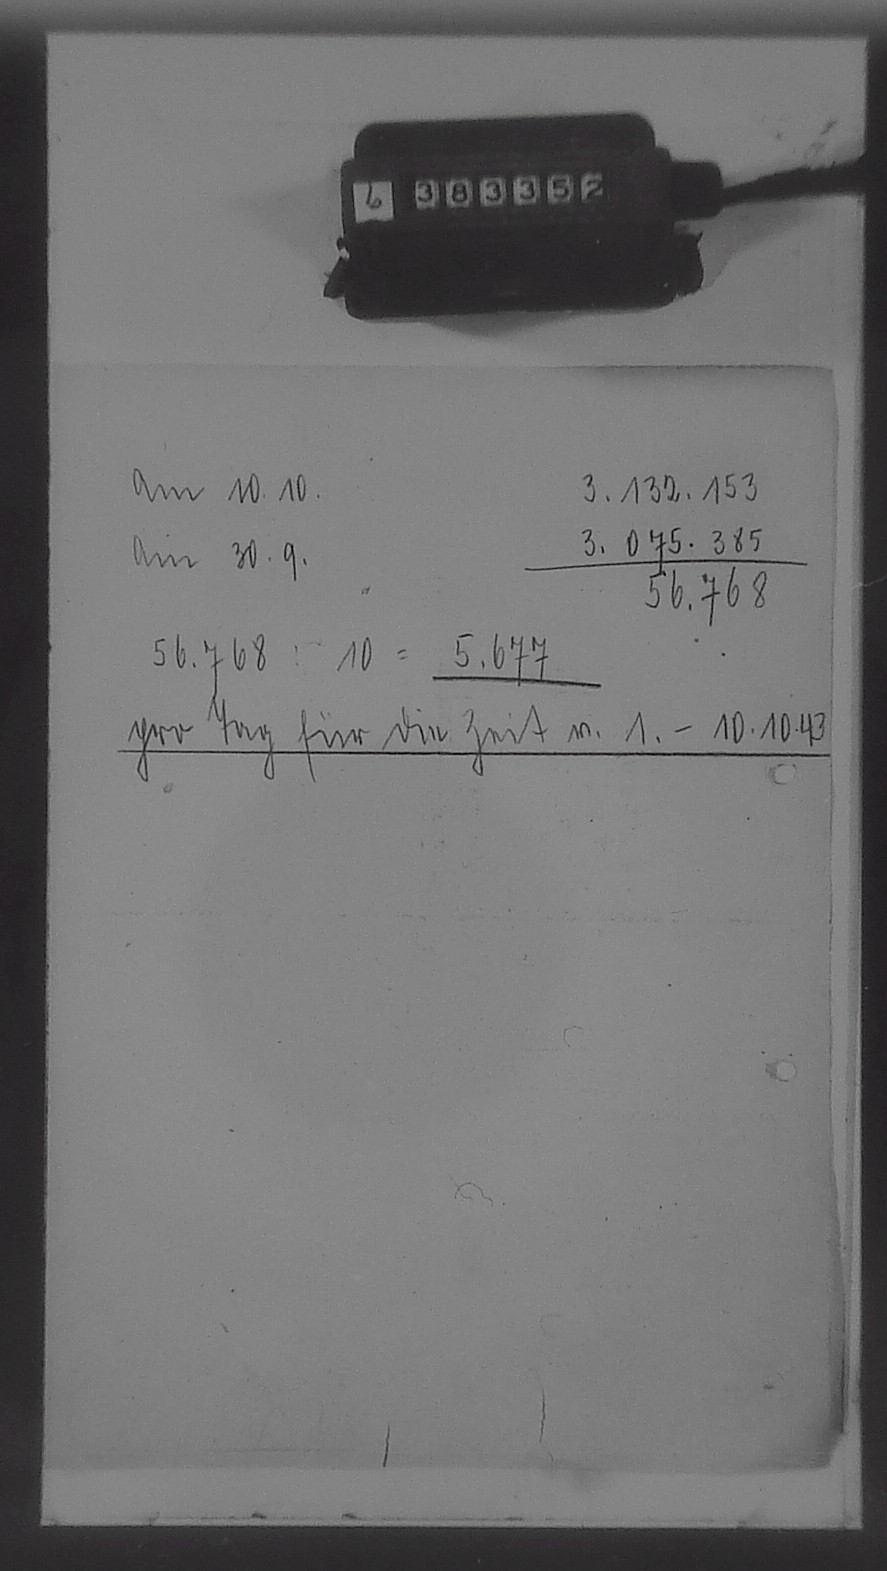 6 383352
am 10.10. 3.132.153
am 30.9. 3.075.385
56.768
56.768 : 10 = 5.677
pro Tag für die Zeit v. 1.- 10.10.43